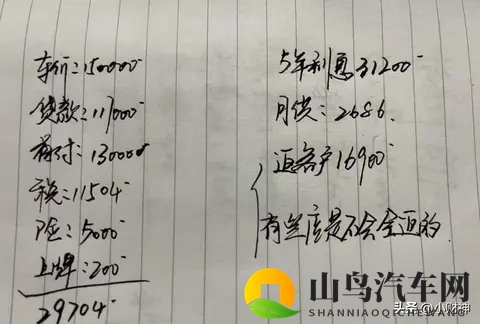 车价:150000
贷款:117000
首付:13000
税:11504
险:5000
上牌:200
29704
5年利息31200
月供:2686.
返客户16900
有些店是不会全返的.
山鸟汽车网
SHANNIAOQICHEWANG
头条@小财神